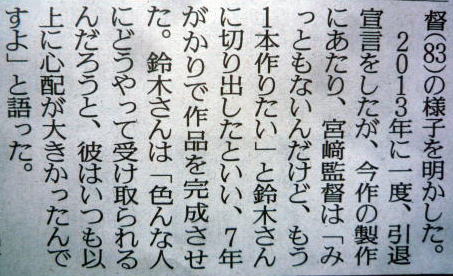 督(83)の様子を明かした。
2013年に一度、引退
宣言をしたが、今作の製作
にあたり、宮﨑監督は「み
っともないんだけど、もう
1本作りたい」と鈴木さん
に切り出したといい、7年
がかりで作品を完成させ
た。鈴木さんは「色んな人
にどうやって受け取られる
んだろうと、彼はいつも以
上に心配が大きかったんで
すよ」と語った。